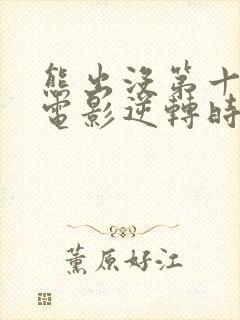 熊出没第十
電影逆轉時
薰原好江